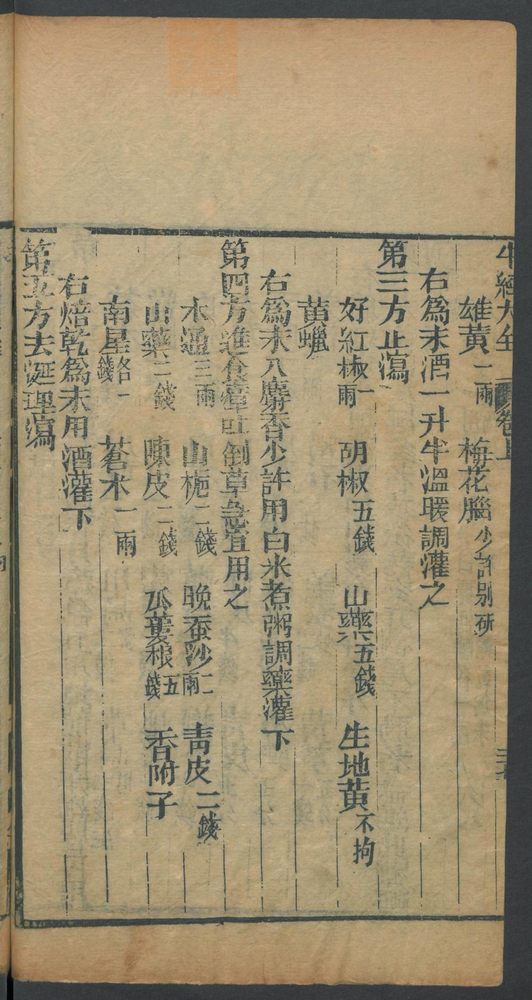 牛經大全 卷上
雄黃二兩 梅花腦少許别研
右爲末酒一升半溫暖調灌之
第三方止瀉
好紅椒一兩 胡椒五錢 山藥五錢 生地黃不拘
黃蠟
右爲末入麝香少許用白米煮粥調藥灌下
第四方 倒草急宜用之
木通三兩 山梔二錢 晚蚕沙二兩 靑皮二錢
山藥三錢 陳皮二錢 瓜蔞根五錢 香附子
南星 蒼朮一兩
右焙乾爲末用酒灌下
第五方去涎理瀉